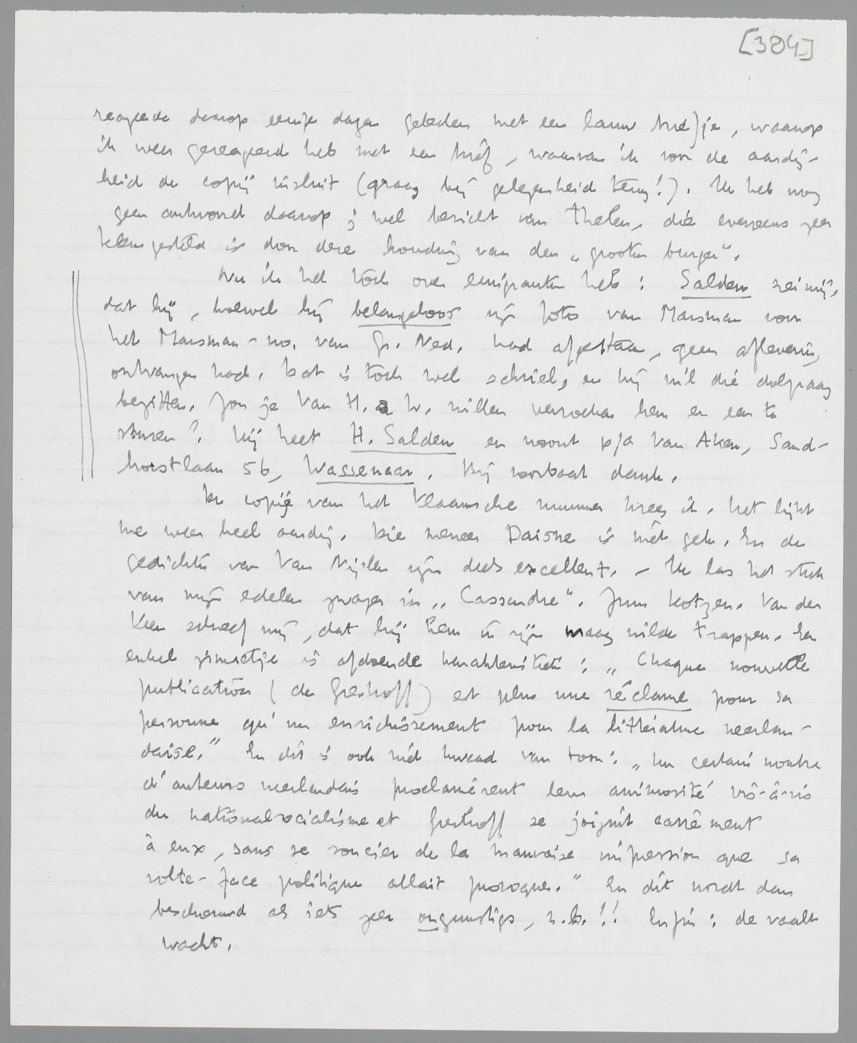 [384]
reageerde daarop eenige dagen geleden met een lauw briefje, waarop
ik weer gereageerd heb met een brief, waarvan ik voor de aardig-
heid de copij insluit (graag bij gelegenheid terug!). Ik heb nog
geen antwoord daarop; wel bericht van Thelen, die eveneens zeer
teleurgesteld is door deze houding van den „grooten burger".
Nu ik het toch over emigranten heb: Salden zei mij,
dat hij, hoewel hij belangeloos zijn foto van Marsman voor
het Marsman-no. van Gr. Ned. had afgestaan, geen aflevering
ontvangen had. Dat is toch wel schriel, en hij wil die dolgraag
bezitten. Zou je Van H. & W. willen verzoeken hem er een te
sturen? Hij heet H. Salden en woont p/a Van Aken, Sand-
horstlaan 56, Wassenaar. Bij voorbaat dank.
De copij van het Vlaamsche nummer kreeg ik. Het lijkt
me weer heel aardig. Die meneer Daisne is niet gek. En de
gedichten van Van Nijlen zijn deels excellent. – Ik las het stuk
van mijn edelen zwager in „Cassandre". Om te kotsen. Van der
Veen schreef mij, dat hij hem in zijn maag wilde trappen. Een
enkel zinnetje is afdoende karakteristiek: „Chaque nouvelle
publication (de Greshoff) est plus une réclame pour sa
personne qu'un enrichissement pour la littérature neerlan-
daise." En dit is ook niet kwaad van toon: „Un certain nombre
d'auteurs neerlandais proclamèrent leur animosité vis-à-vis
du nationalsocialisme et Greshoff se joignit carrément
à eux, sans se soucier de la mauvaise impression que sa
volte-face politique allait provoquer." En dit wordt dan
beschouwd als iets zeer ongunstigs, n.b.!! Enfin: de vaalt
wacht.